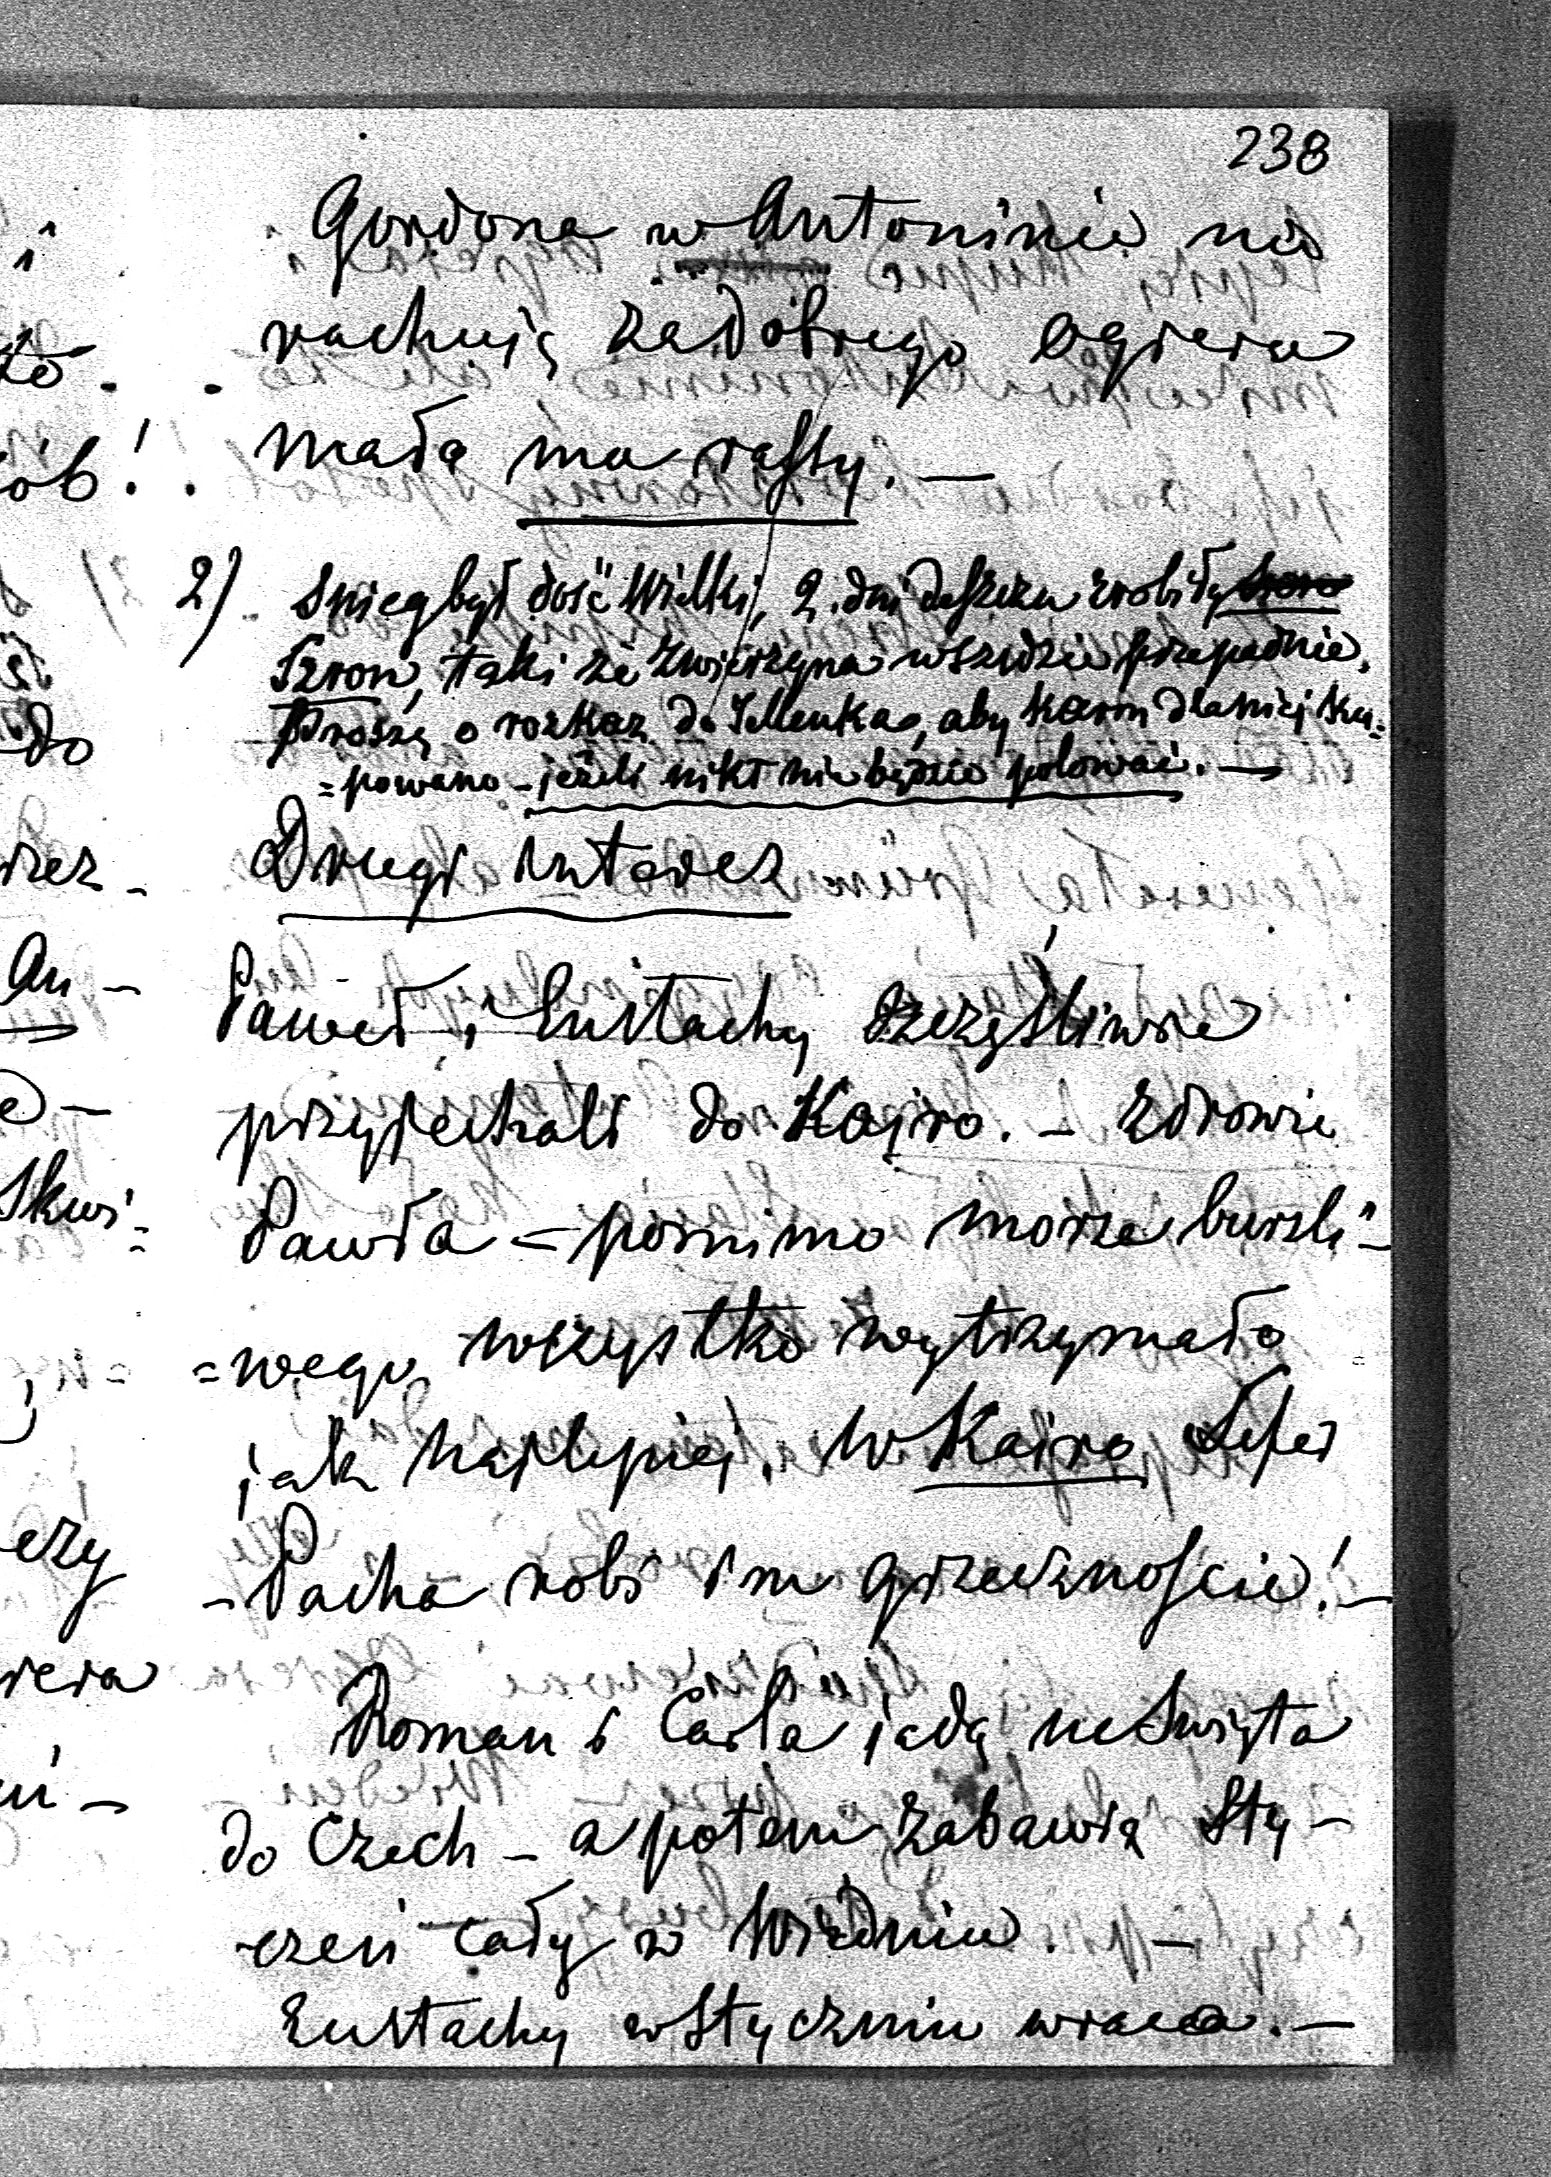 238
Gordona w Antoninie nie
rachuję za dobrego ogiera
mało ma rassy. —
2) Snieg był dość Wielki, 2. dni deszczu zrobiły
Szron, taki że zwierzyna wszędzie przepadnie.
Proszę o rozkaz do Jellenka, aby karm dla niej ku=
=powano – jeżeli nikt nie będzie polować. —
Drugi interes
Paweł i Eustachy szczęśliwie
przyjechali do Kairo. – Zdrowie
Pawła – pomimo morza burzli–
=wego, wszystko wytrzymało
jak najlepiej. w Kairo
– Pacha robi im grzecznoście! –
Roman i Carla jadą na Święta
do Czech – a potem zabawią Sty–
–czeń cały w Wiedniu. –
Eustachy w Styczniu wraca. –